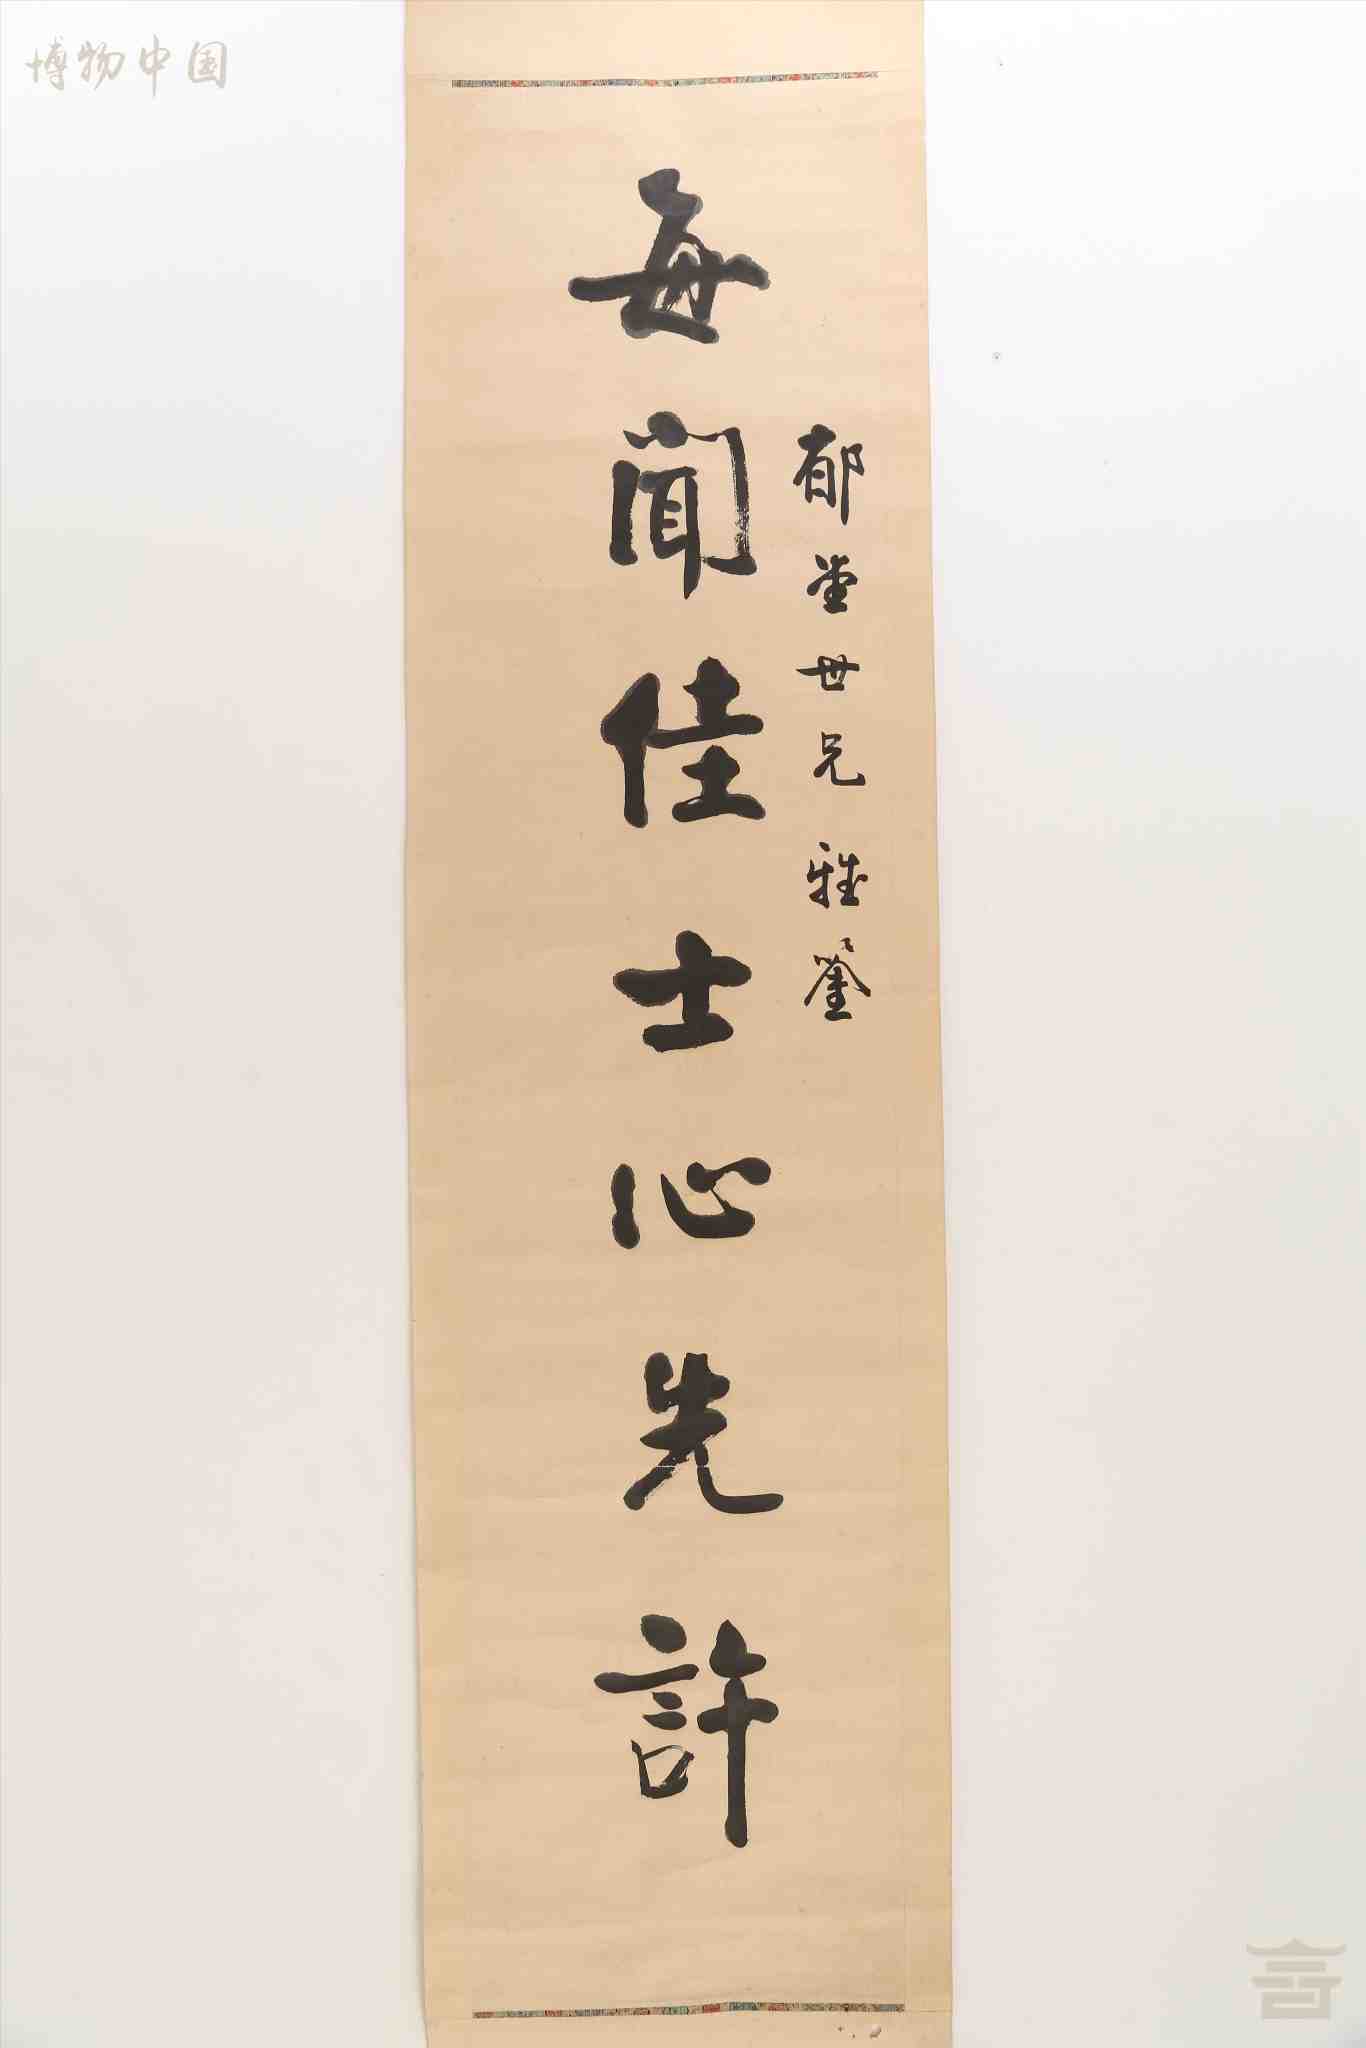 博物中国
郁堂世兄雅鉴
每聞佳士心先許